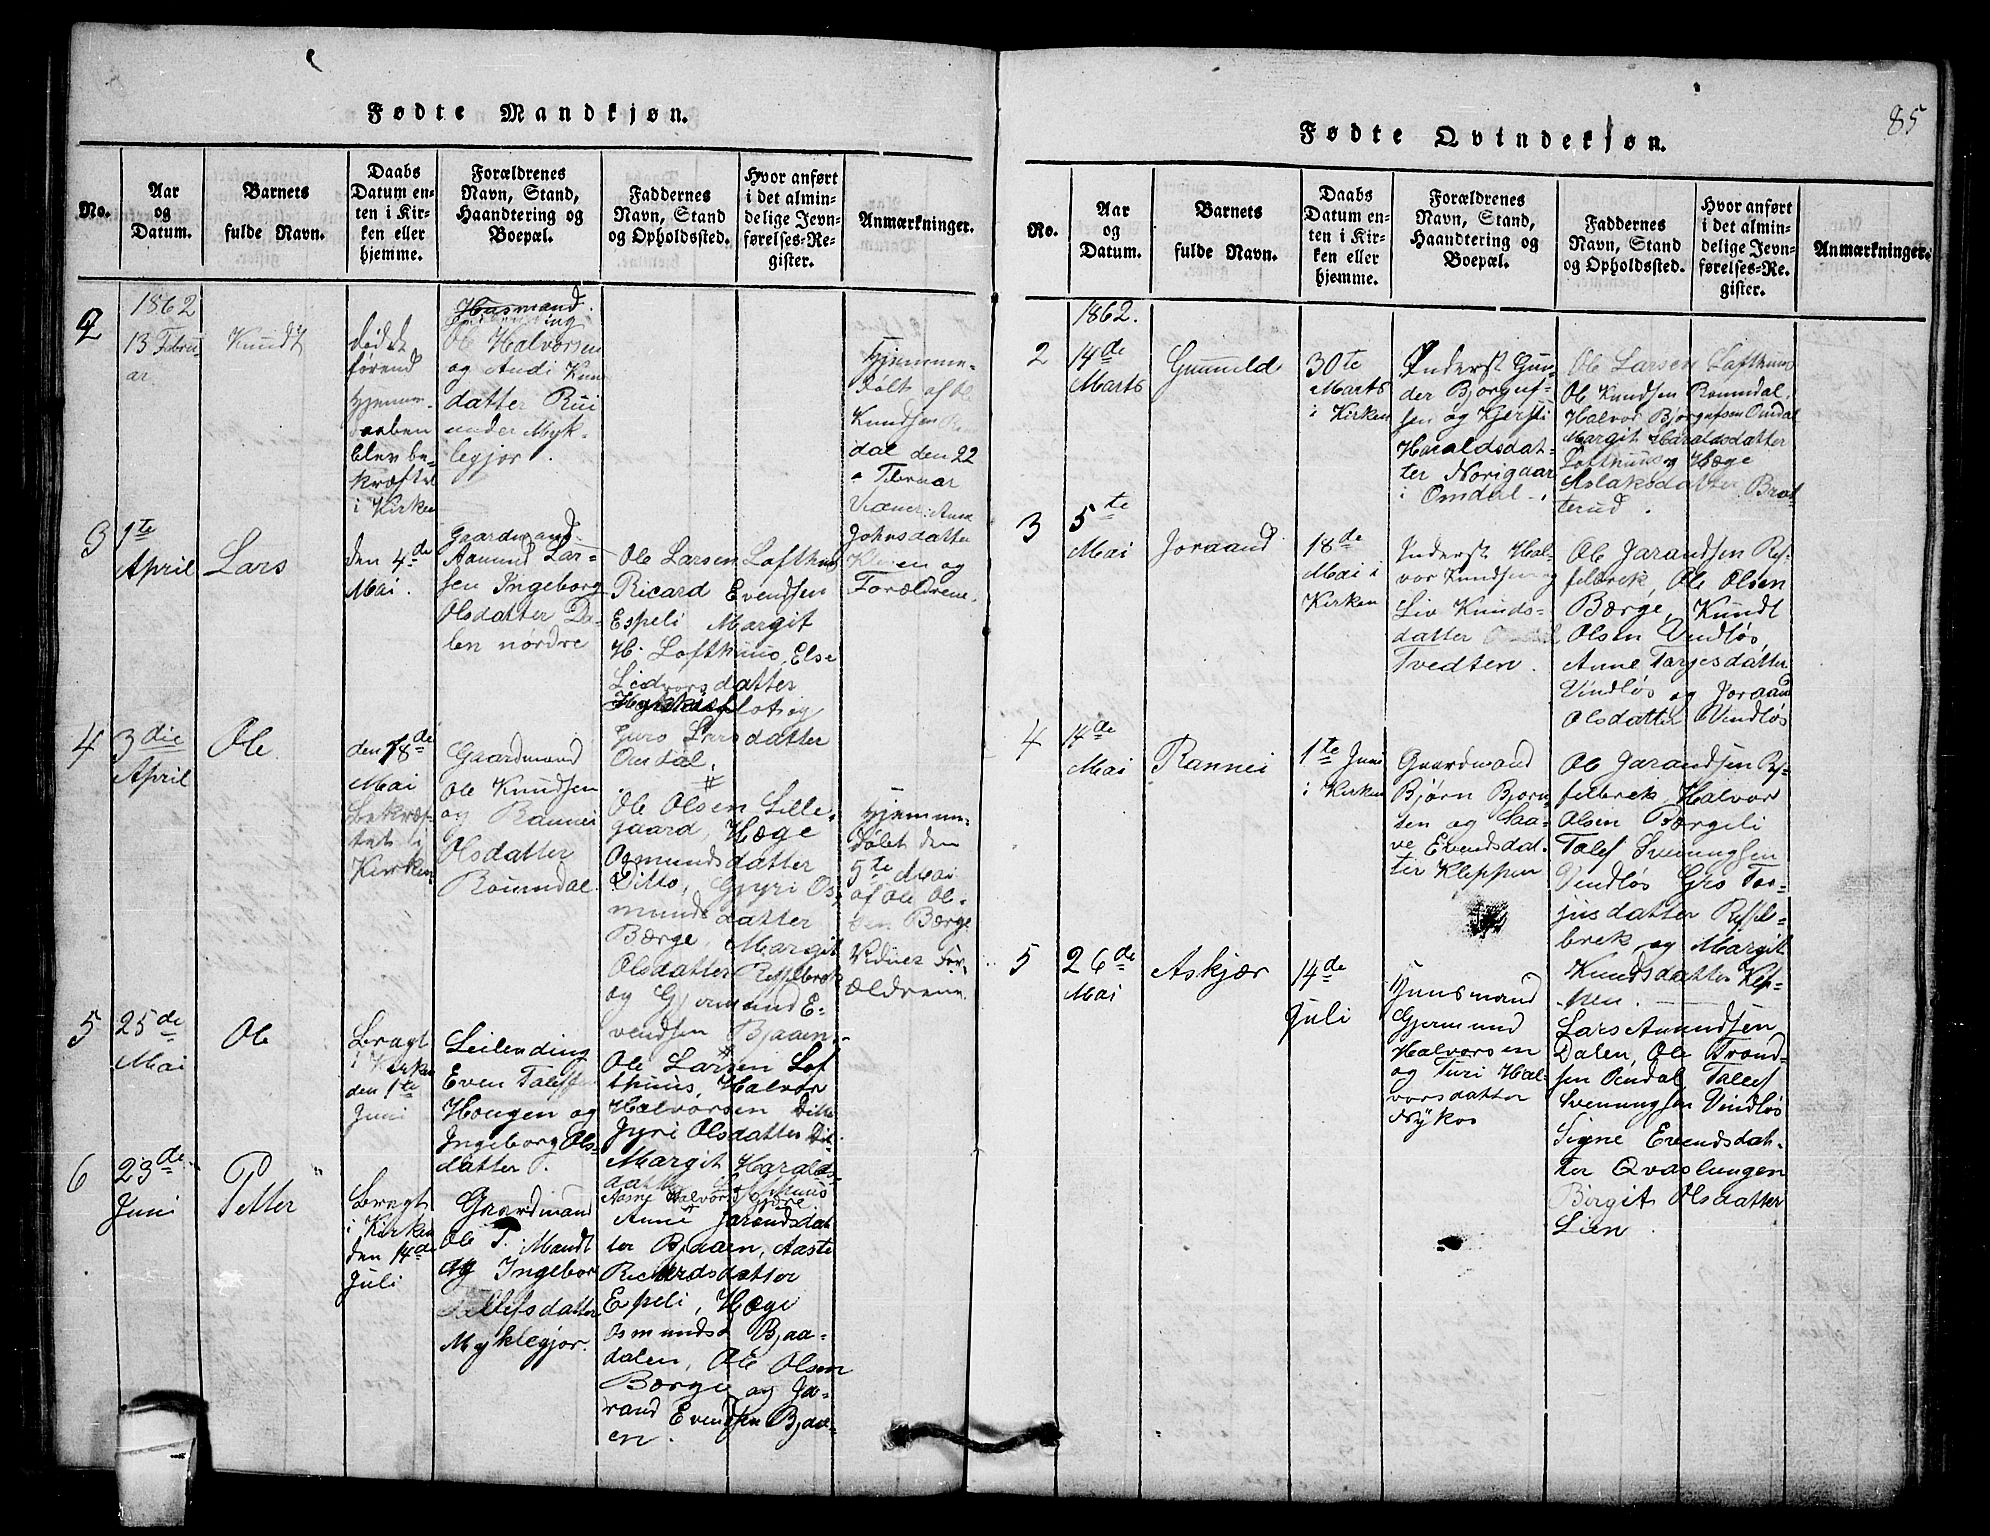 85
Fødte Mandkjøn.
No.
Aar
og
Datum.
Barnets
fulde Navn.
Daabs
Datum en-
ten i Kir-
ken eller
hjemme.
Forældrenes
Navn, Stand,
Haandtering og
Boepæl.
Faddernes
Navn, Stand
og Opholdssted.
Hvor anført
i det almin-
delige Jevn-
førelses-Re-
gister.
Anmærkninger.
2
1862
13 Febru-
ar.
Knudt
døbt
hjemme-
daaben
blev be-
kræftet
i Kirken
Husmand
Ole Halvorsen
og Andi Knu
datter Rui
under Myk-
legjor.
Hjemme-
døbt af Ole
Knudsen
dal den 22
Februar
Johnsdatter
og
Forældrene.
3
1te
April
Lars
den 4de
Mai.
Gaardmand
Aamund Lar-
sen Ingeborg
Olsdatter Da-
len nordre
Ole Larsen Lofthus
Ricard Evendsen
Espeli Margit
H. Lofthuus, Else
Ledvorsdatter
og
Guro Larsdatter
Omdal.
4
3die
April
Ole
den 18de
Mai
bekræf-
tet i
Kirken
Gaardmand
Ole Knudsen
og Rannei
Olsdatter
Roumdal.
Ole Olsen Lille-
gaard, Hæge
Osmundsdatter
Ditto, Gyri Os-
mundsdatter
Børge, Margit
Olsdatter Rysfelbrek
og Gjermund E-
vendsen Bjaaen.
Hjemme-
døbt den
5te Mai
af Ole Ol-
sen Børge
Vidner For-
ældrene
5
25de
Mai
Ole
Bragt
i Kirken
den 1te
Juni
Leilending
Even Talefsen
Hougen og
Ingeborg Ols-
datter.
Ole Larsen Lof
thuus, Halvor
Halvorsen Ditto
Jyri Olsdatter Dit.
Margit Haralds-
datter Lofthuus
6
23de
Juni
Petter
Bragt
i Kirken
den 14de
Juli
Gaardmand
Ole T. Mandt
og Ingebor
Tallefsdatter
Myklegjor.
Anne Jarandsdat
ter Bjaaen, Aaste
Ricardsdatter
Espeli, Hæge
Osmundsd Bjaa-
dalen, Ole Olsen
Børge og Ja-
rand Evendsen Bjaa-
en.
Fødte Qvindekjøn.
No.
Aar
og
Datum.
Barnets
fulde Navn.
Daabs
Datum en-
ten i Kir-
ken eller
hjemme.
Forældrenes
Navn, Stand,
Haandtering og
Boepæl.
Faddernes
Navn, Stand
og Opholdssted.
Hvor anført
i det almin-
delige Jevn-
førelses-Re-
gister.
Anmærkninger.
1862.
2
14de
Marts
Gunnild
30te
Marts
i Kirken
Inderst Gun-
der Bjorguf-
sen og Kjersti
Haraldsdat-
ter Norigaar
i Omdal.
Ole Larsen Lofthuus
Ole Knudsen Romndal.
Halvor Bjørgufsen Omdal
Margit Haraldsdatter
Lofthuus og Hæge
Aslaksdatter Brat
terud.
3
5te
Mai
Joraand
18de
Mai i
Kirken
Inderst Hal-
vor Knudsen og
Liv Knuds-
datter
Tvedten.
Ole Jarandsen Rys-
felbrek, Ole Olsen
Børge, Knudt
Olsen Vindløs,
Anne Targesdatter
Vindløs og Joraand
Olsdatter Vindløs
4
14de
Mai
Rannei
1te Juni
i Kirken
Gaardmand
Bjørn Bjorn
sen og Saa-
ve Evendsdat-
ter Kleppen
Ole Jarandsen Ry-
felbrek Halvor
Olsen Børgeli
Talef Svenungsen
Vindløs Gro Tar-
jusdatter Rysfel-
brek og Margit
Knudsdatter Klep-
pen.
5
26de
Mai
Askjær
14de
Juli
Huusmand
Gjermund
Halvorsen
og Turi Hal-
vorsdatter
Nykos
Lars Amundsen
Dalen, Ole Trond-
sen Omdal, Talef
Svenungsen Vindløs
Signe Evendsdat-
ter Qvaslungen
Birgit Olsdatter
Lien.